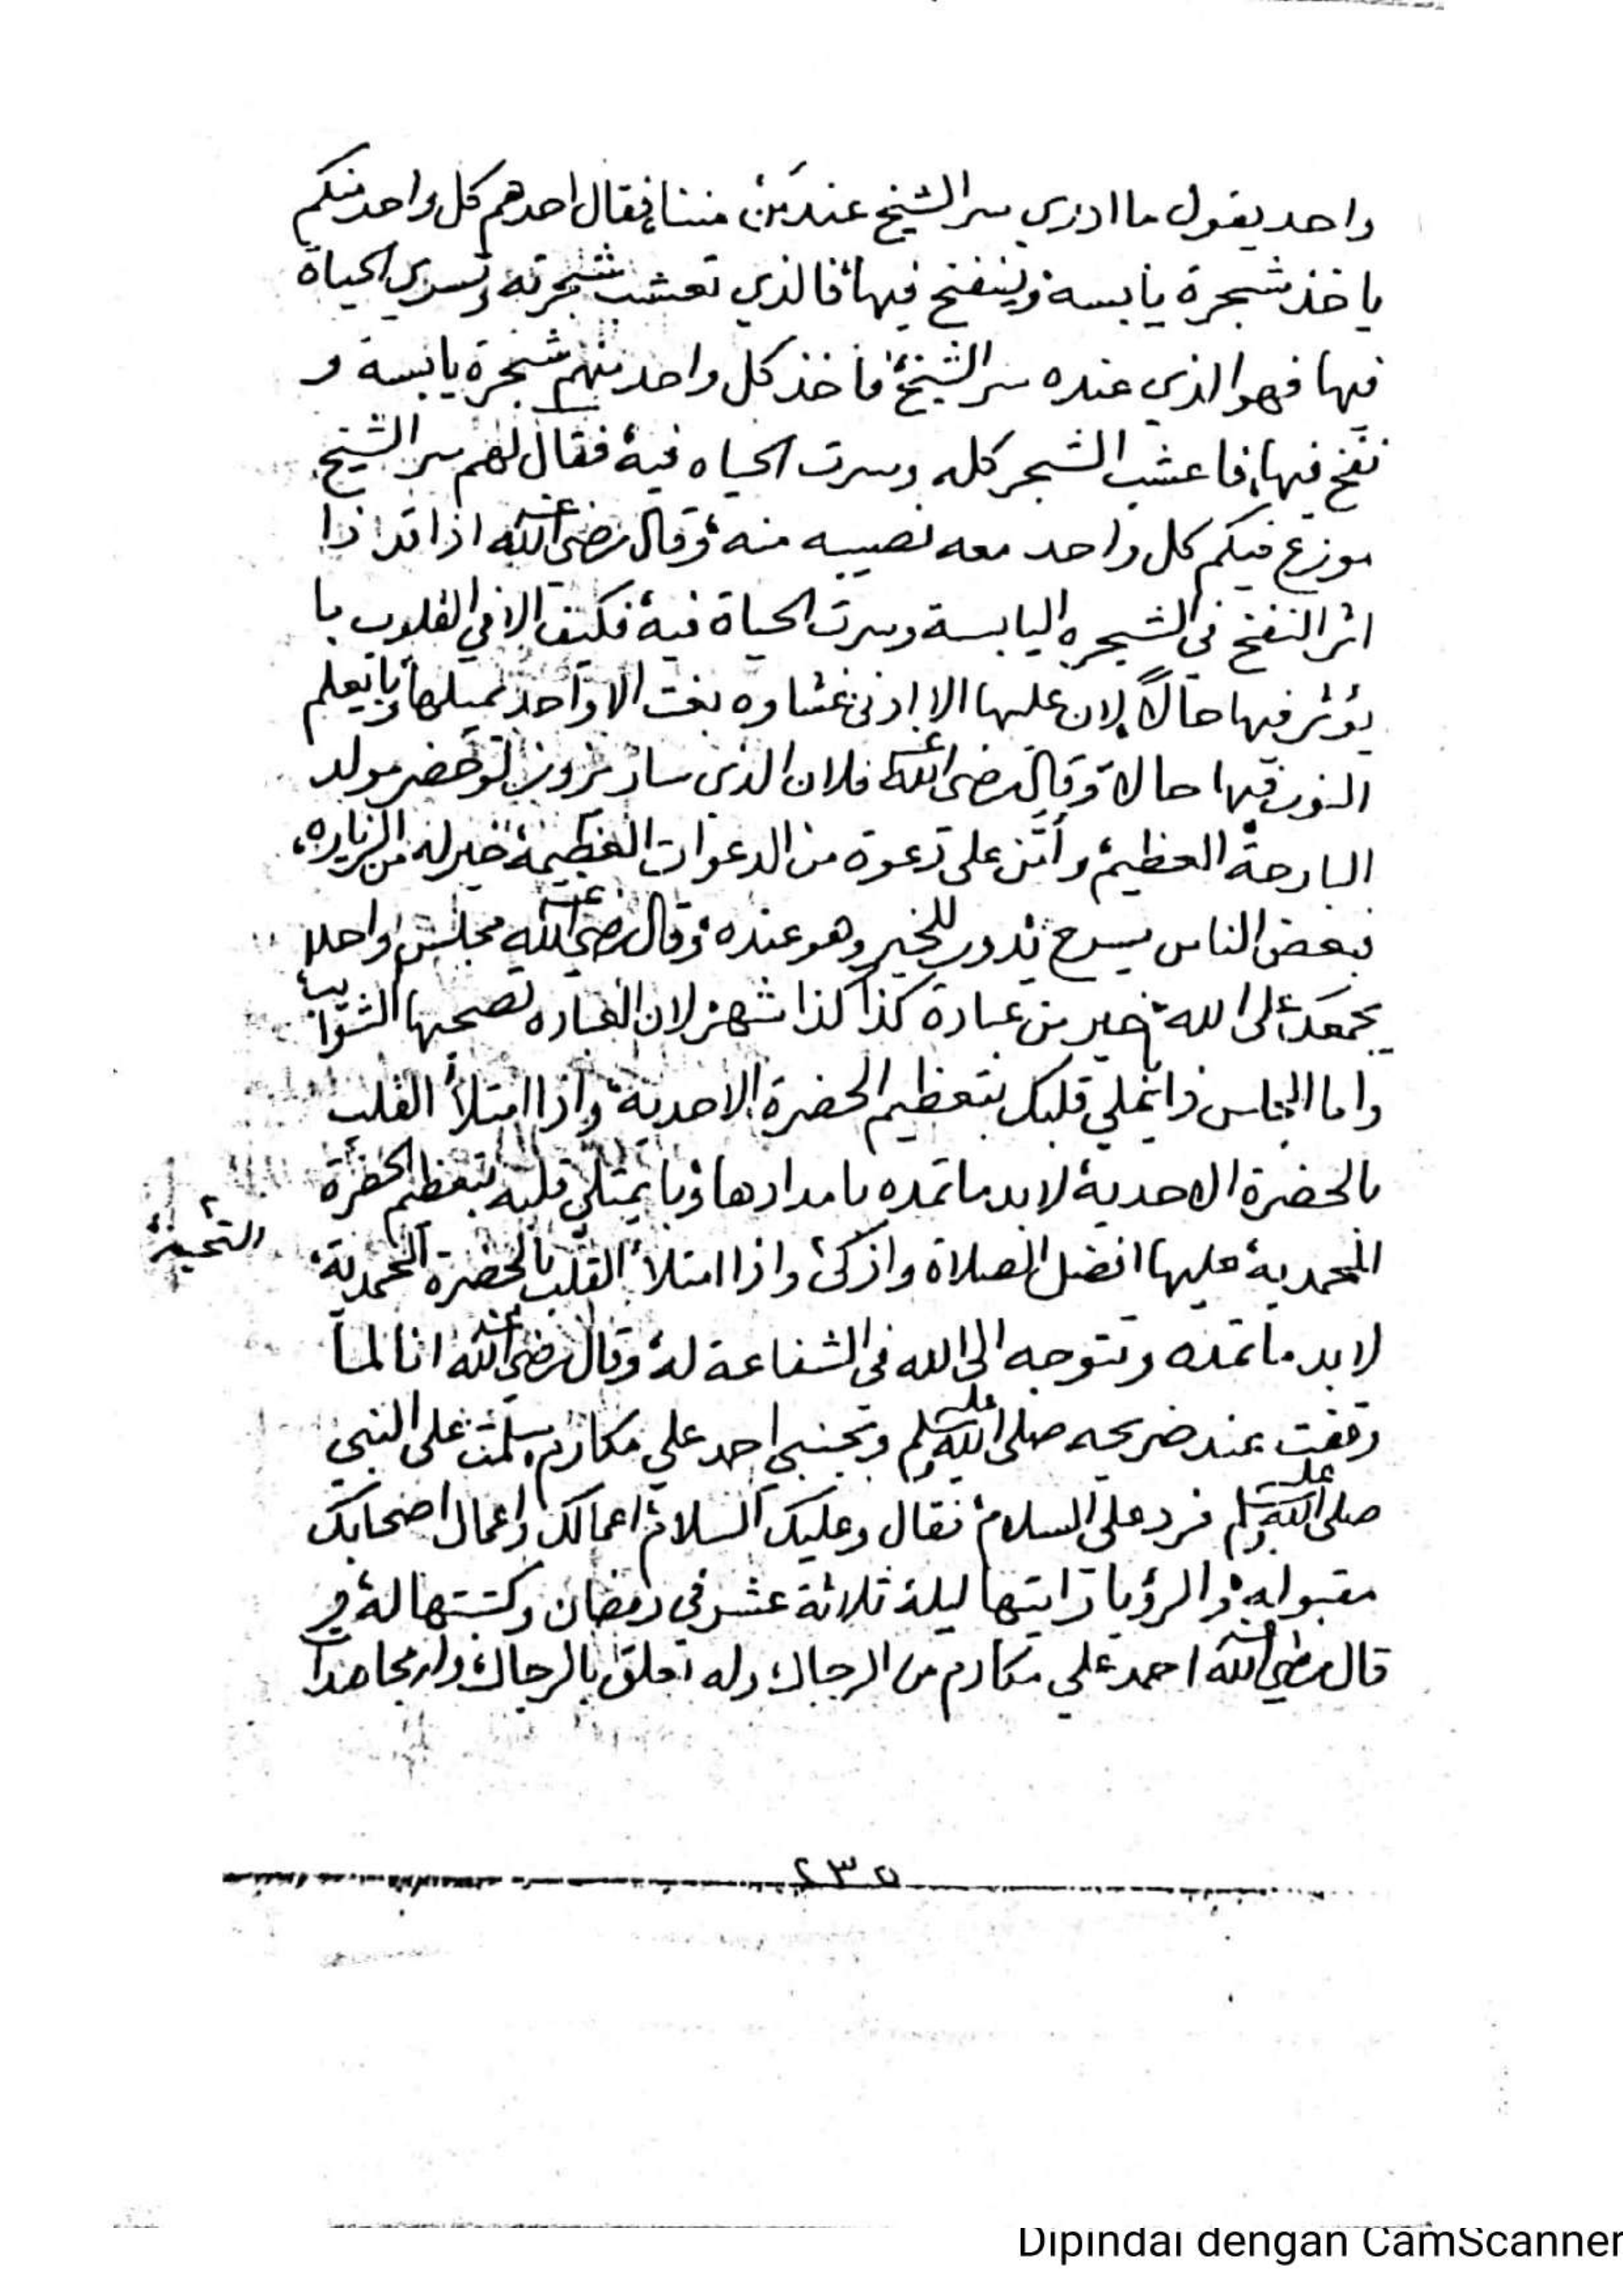 واحد يقول ما ادري سر الشيخ عند مَنْ مننا، فقال احدهم كل واحد منكم
ياخذ شجرة يابسة وينفخ فيها، فالذي تعشب شجرته وتسري الحياة
فيها فهو الذي عنده سر الشيخ، فاخذ كل واحد منهم شجرة يابسة و
نفخ فيها، فاعشب الشجر كله وسرت الحياه فيه، فقال لهم سر الشيخ
موزع فيكم كل واحد معه نصيبه منه، وقال رضي الله عنه اذا قد اذا
اثر النفخ في الشجره اليابسة وسرت الحياة فيه، فكيف الا في القلوب با
يؤثر فيها حالاً، لان عليها الا ادنى غشاوه بغت الا واحد يميلها، وبايعلم
النور فيها حالا، وقال رضي الله عنه فلان الذي سار يزور لو حضر مولد
البارحة العظيم، وأمَّن على دعوة من الدعوات العظيمة، خير له من الزياره،
فبعض الناس يسرح يدور للخير وهو عنده، وقال رضي الله عنه مجلس واحد
يجمعك على الله، خير من عبادة كذا كذا شهر لان العباده تصحبها الشوائب
واما المجلس ذا يملي قلبك بتعظيم الحضرة الاحدية، واذا امتلأ القلب
بالحضرة الاحدية، لابد ما تمده بامدادها، وبا يمتلي قلبه بتعظيم الحضرة
المحمدية، عليها افضل الصلاة وازكى، واذا امتلأ القلب بالحضرة المحمدية،
التحية
لا بد ما تمده وتتوجه الى الله في الشفاعة له، وقال رضي الله عنه انا لما
وقفت عند ضريحه صلى الله عليه وسلم وبجنبي احمد علي مكارم، سلمت على النبي
صلى الله عليه وسلم فرد علي السلام، فقال وعليك السلام، اعمالك واعمال اصحابك
مقبوله، والرؤيا رايتها ليلة ثلاثة عشر في رمضان وكتبتها له، و
قال رضي الله عنه احمد علي مكارم من الرجال، وله تعلق بالرجال، مجاهدا
٢٣٥
Dipindai dengan CamScanner